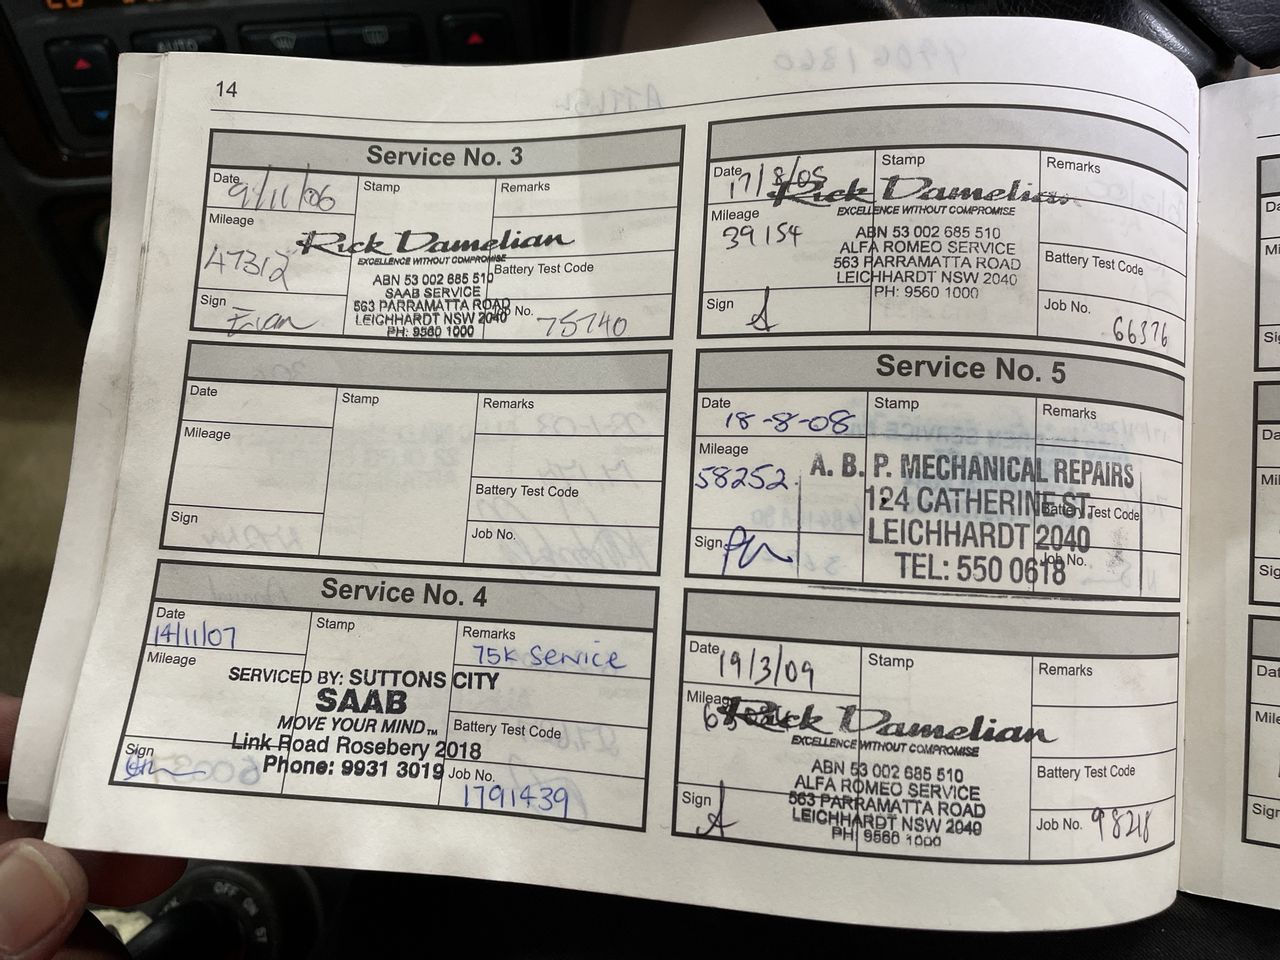 14
Service No. 3
Date 9/11/06
Stamp
Remarks
Mileage
47312
Rick Damelian
EXCELLENCE WITHOUT COMPROMISE
ABN 53 002 685 510
SAAB SERVICE
563 PARRAMATTA ROAD
LEICHHARDT NSW 2040
PH: 9560 1000
Battery Test Code
Sign
Job No. 75740
Date
Stamp
Remarks
Mileage
Battery Test Code
Sign
Job No.
Service No. 4
Date
14/11/07
Stamp
Remarks
75K Service
Mileage
SERVICED BY: SUTTONS CITY
SAAB
MOVE YOUR MIND™
Link Road Rosebery 2018
Phone: 9931 3019
Battery Test Code
Sign
Job No.
1791439
Date 17/8/05
Stamp
Remarks
Mileage
39154
Rick Damelian
EXCELLENCE WITHOUT COMPROMISE
ABN 53 002 685 510
ALFA ROMEO SERVICE
563 PARRAMATTA ROAD
LEICHHARDT NSW 2040
PH: 9560 1000
Battery Test Code
Sign
Job No.
66376
Service No. 5
Date
18-8-08
Stamp
Remarks
Mileage
58252
A. B. P. MECHANICAL REPAIRS
124 CATHERINE ST
LEICHHARDT 2040
TEL: 550 0618
Battery Test Code
Sign
Job No.
Date 19/3/09
Stamp
Remarks
Mileage
Rick Damelian
EXCELLENCE WITHOUT COMPROMISE
ABN 53 002 685 510
ALFA ROMEO SERVICE
563 PARRAMATTA ROAD
LEICHHARDT NSW 2040
PH: 9560 1000
Battery Test Code
Sign
Job No. 98218
AUTO
OFF
ON